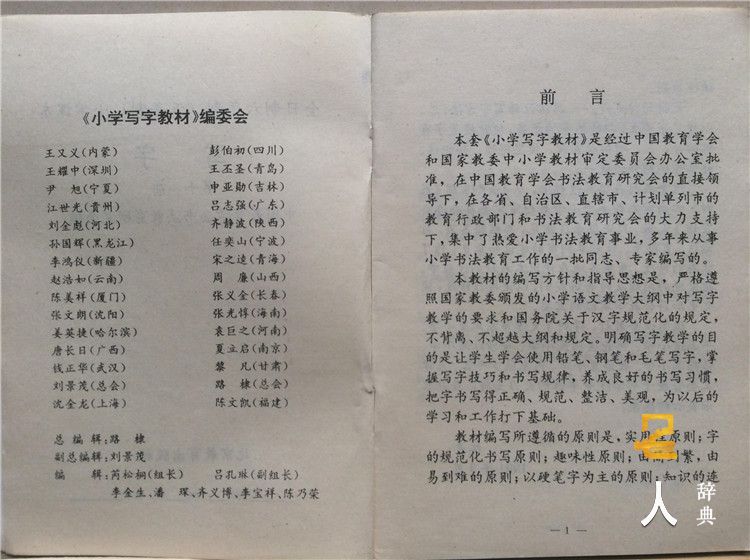 《小学写字教材》编委会
王又义(内蒙) 彭伯初(四川)
王耀中(深圳) 王丕圣(青岛)
尹 旭(宁夏) 申亚勋(吉林)
江世光(贵州) 吕志强(广东)
刘金彪(河北) 齐静波(陕西)
孙国辉(黑龙江) 任奕山(宁波)
李鸿仪(新疆) 宋之逵(青海)
赵浩如(云南) 周 廉(山西)
陈美样(厦门) 张义金(长春)
张文朗(沈阳) 张光𬭚(海南)
姜英捷(哈尔滨) 袁巨之(河南)
唐长日(广西) 夏立启(南京)
钱正华(武汉) 黎 凡(甘肃)
刘景茂(总会) 路 棣(总会)
沈金龙(上海) 陈文凯(福建)
总 编 辑:路 棣
副总编辑:刘景茂
编 辑:芮松桐(组长) 吕孔琳(副组长)
李金生、潘 琛、齐义博、李宝祥、陈乃荣
前 言
本套《小学写字教材》是经过中国教育学会
和国家教委中小学教材审定委员会办公室批
准,在中国教育学会书法教育研究会的直接领
导下,在各省、自治区、直辖市、计划单列市的
教育行政部门和书法教育研究会的大力支持
下,集中了热爱小学书法教育事业,多年来从事
小学书法教育工作的一批同志、专家编写的。
本教材的编写方针和指导思想是,严格遵
照国家教委颁发的小学语文教学大纲中对写字
教学的要求和国务院关于汉字规范化的规定,
不背离、不超越大纲和规定。明确写字教学的目
的是让学生学会使用铅笔、钢笔和毛笔写字,掌
握写字技巧和书写规律,养成良好的书写习惯,
把字书写得正确、规范、整洁、美观,为以后的
学习和工作打下基础。
教材编写所遵循的原则是,实用性原则;字
的规范化书写原则;趣味性原则;由简到繁,由
易到难的原则;以硬笔字为主的原则;知识的连
—1—
人 辞典